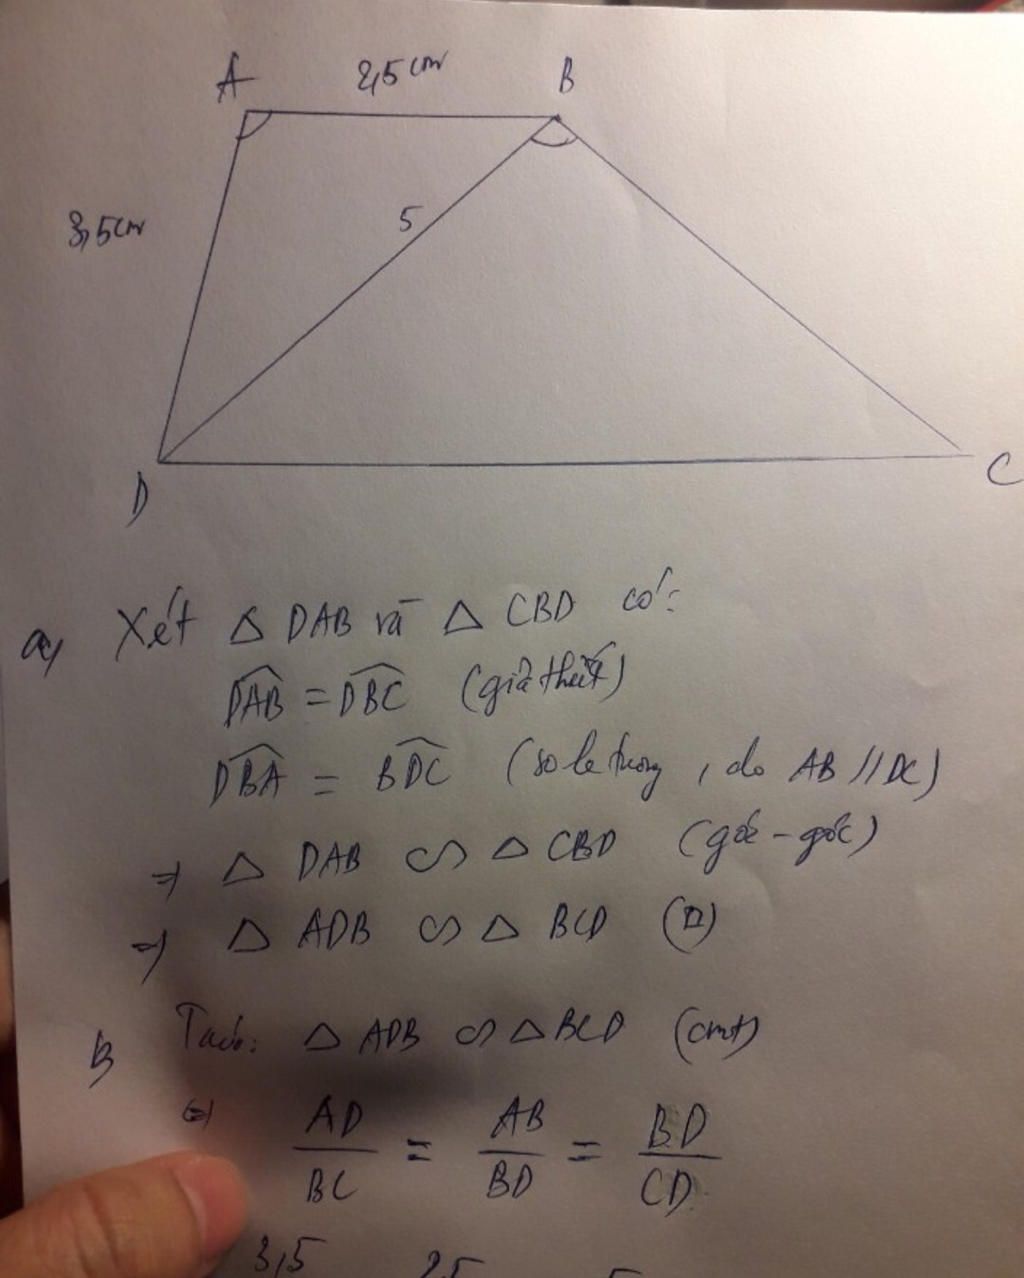 A 2,5cm B
3,5cm
5
D C
a, Xét △ DAB và △ CBD có:
DAB = DBC (giả thiết)
DBA = BDC (so le trong, do AB // DC)
=> △ DAB ∽ △ CBD (góc - góc)
=> △ ADB ∽ △ BCD
b Ta có: △ ADB ∽ △ BCD (cmt)
=> AD/BC = AB/BD = BD/CD
3,5 2,5 5